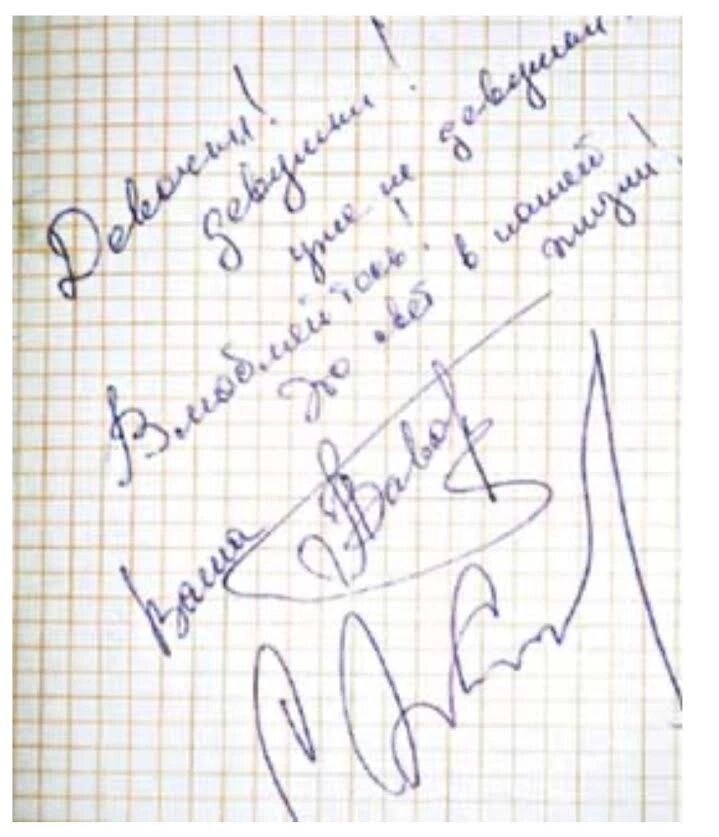 Девочки!
девушки!
уже не девушки!
Влюбляйтесь!
Это свет в нашей
жизни!
Ваша